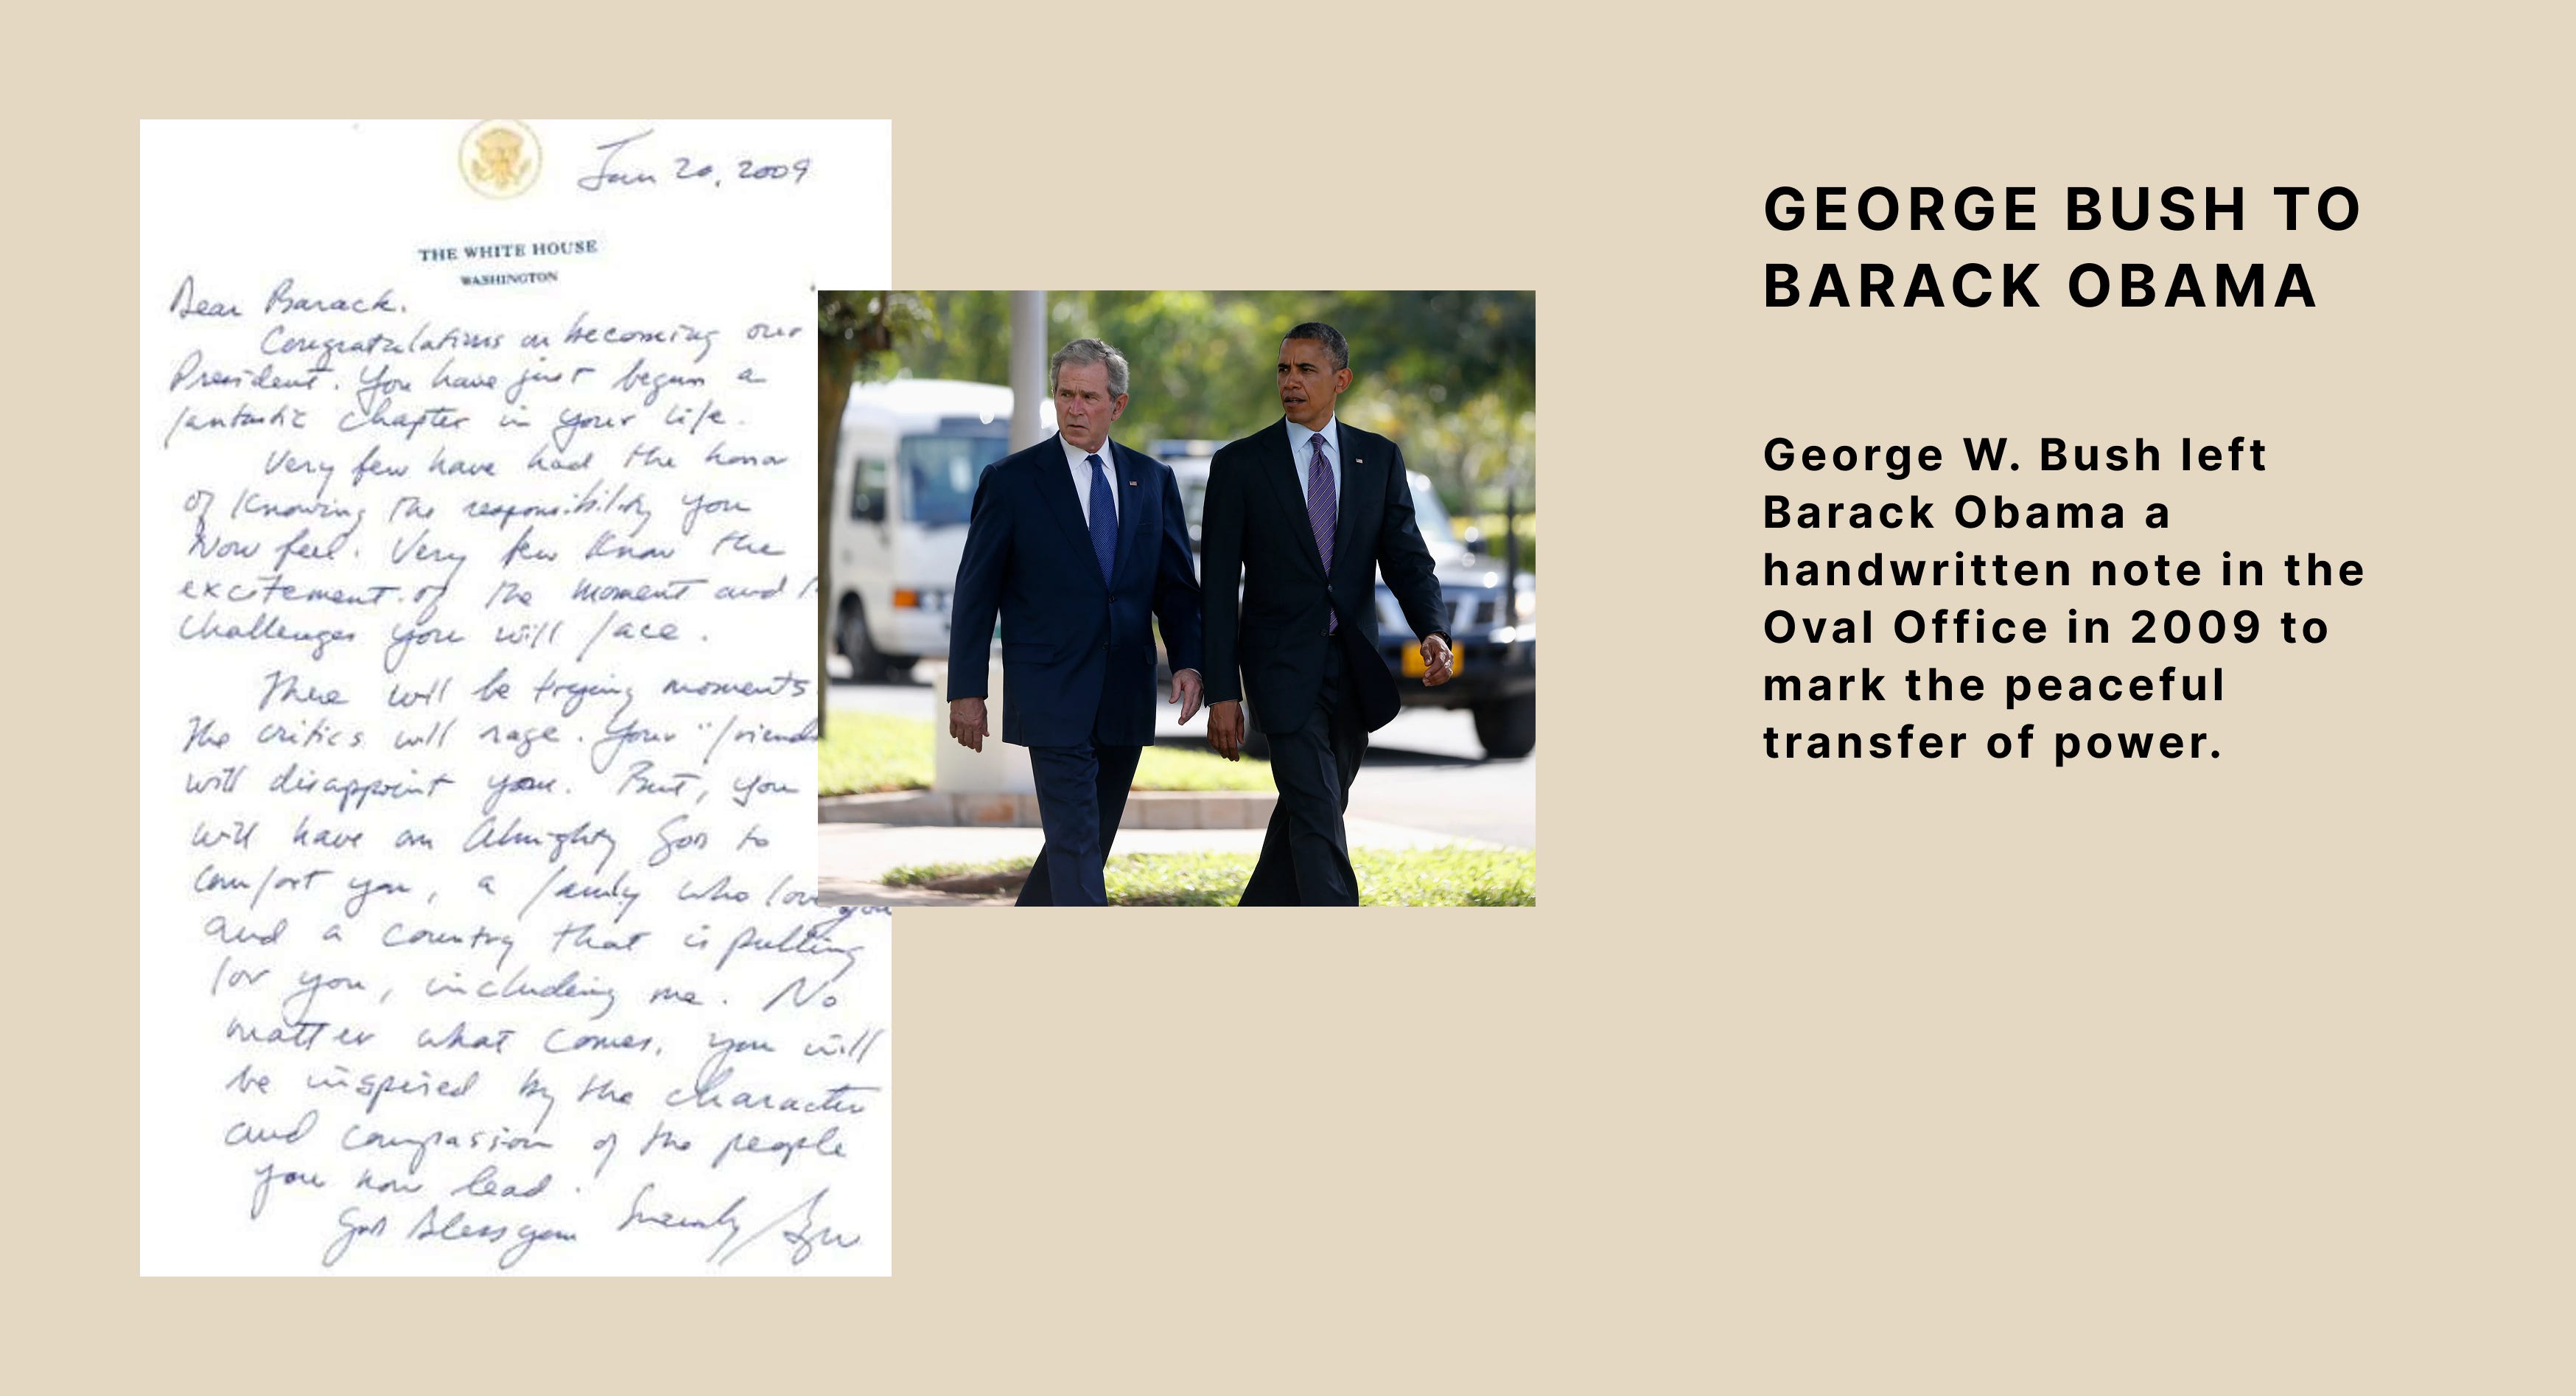 Jan 20, 2009
THE WHITE HOUSE
WASHINGTON
Dear Barack.
Congratulations on becoming our
President. You have just begun a
fantastic chapter in your life.
Very few have had the honor
of knowing the responsibility you
now feel. Very few know the
excitement of the moment and
challenges you will face.
There will be trying moments
The critics will rage. Your "friends
will disappoint you. But, you
will have an Almighty God to
comfort you, a family who love you
and a country that is pulling
for you, including me. No
matter what comes, you will
be inspired by the character
and compassion of the people
you now lead.
God bless you
Sincerely, GW
GEORGE BUSH TO
BARACK OBAMA
George W. Bush left
Barack Obama a
handwritten note in the
Oval Office in 2009 to
mark the peaceful
transfer of power.